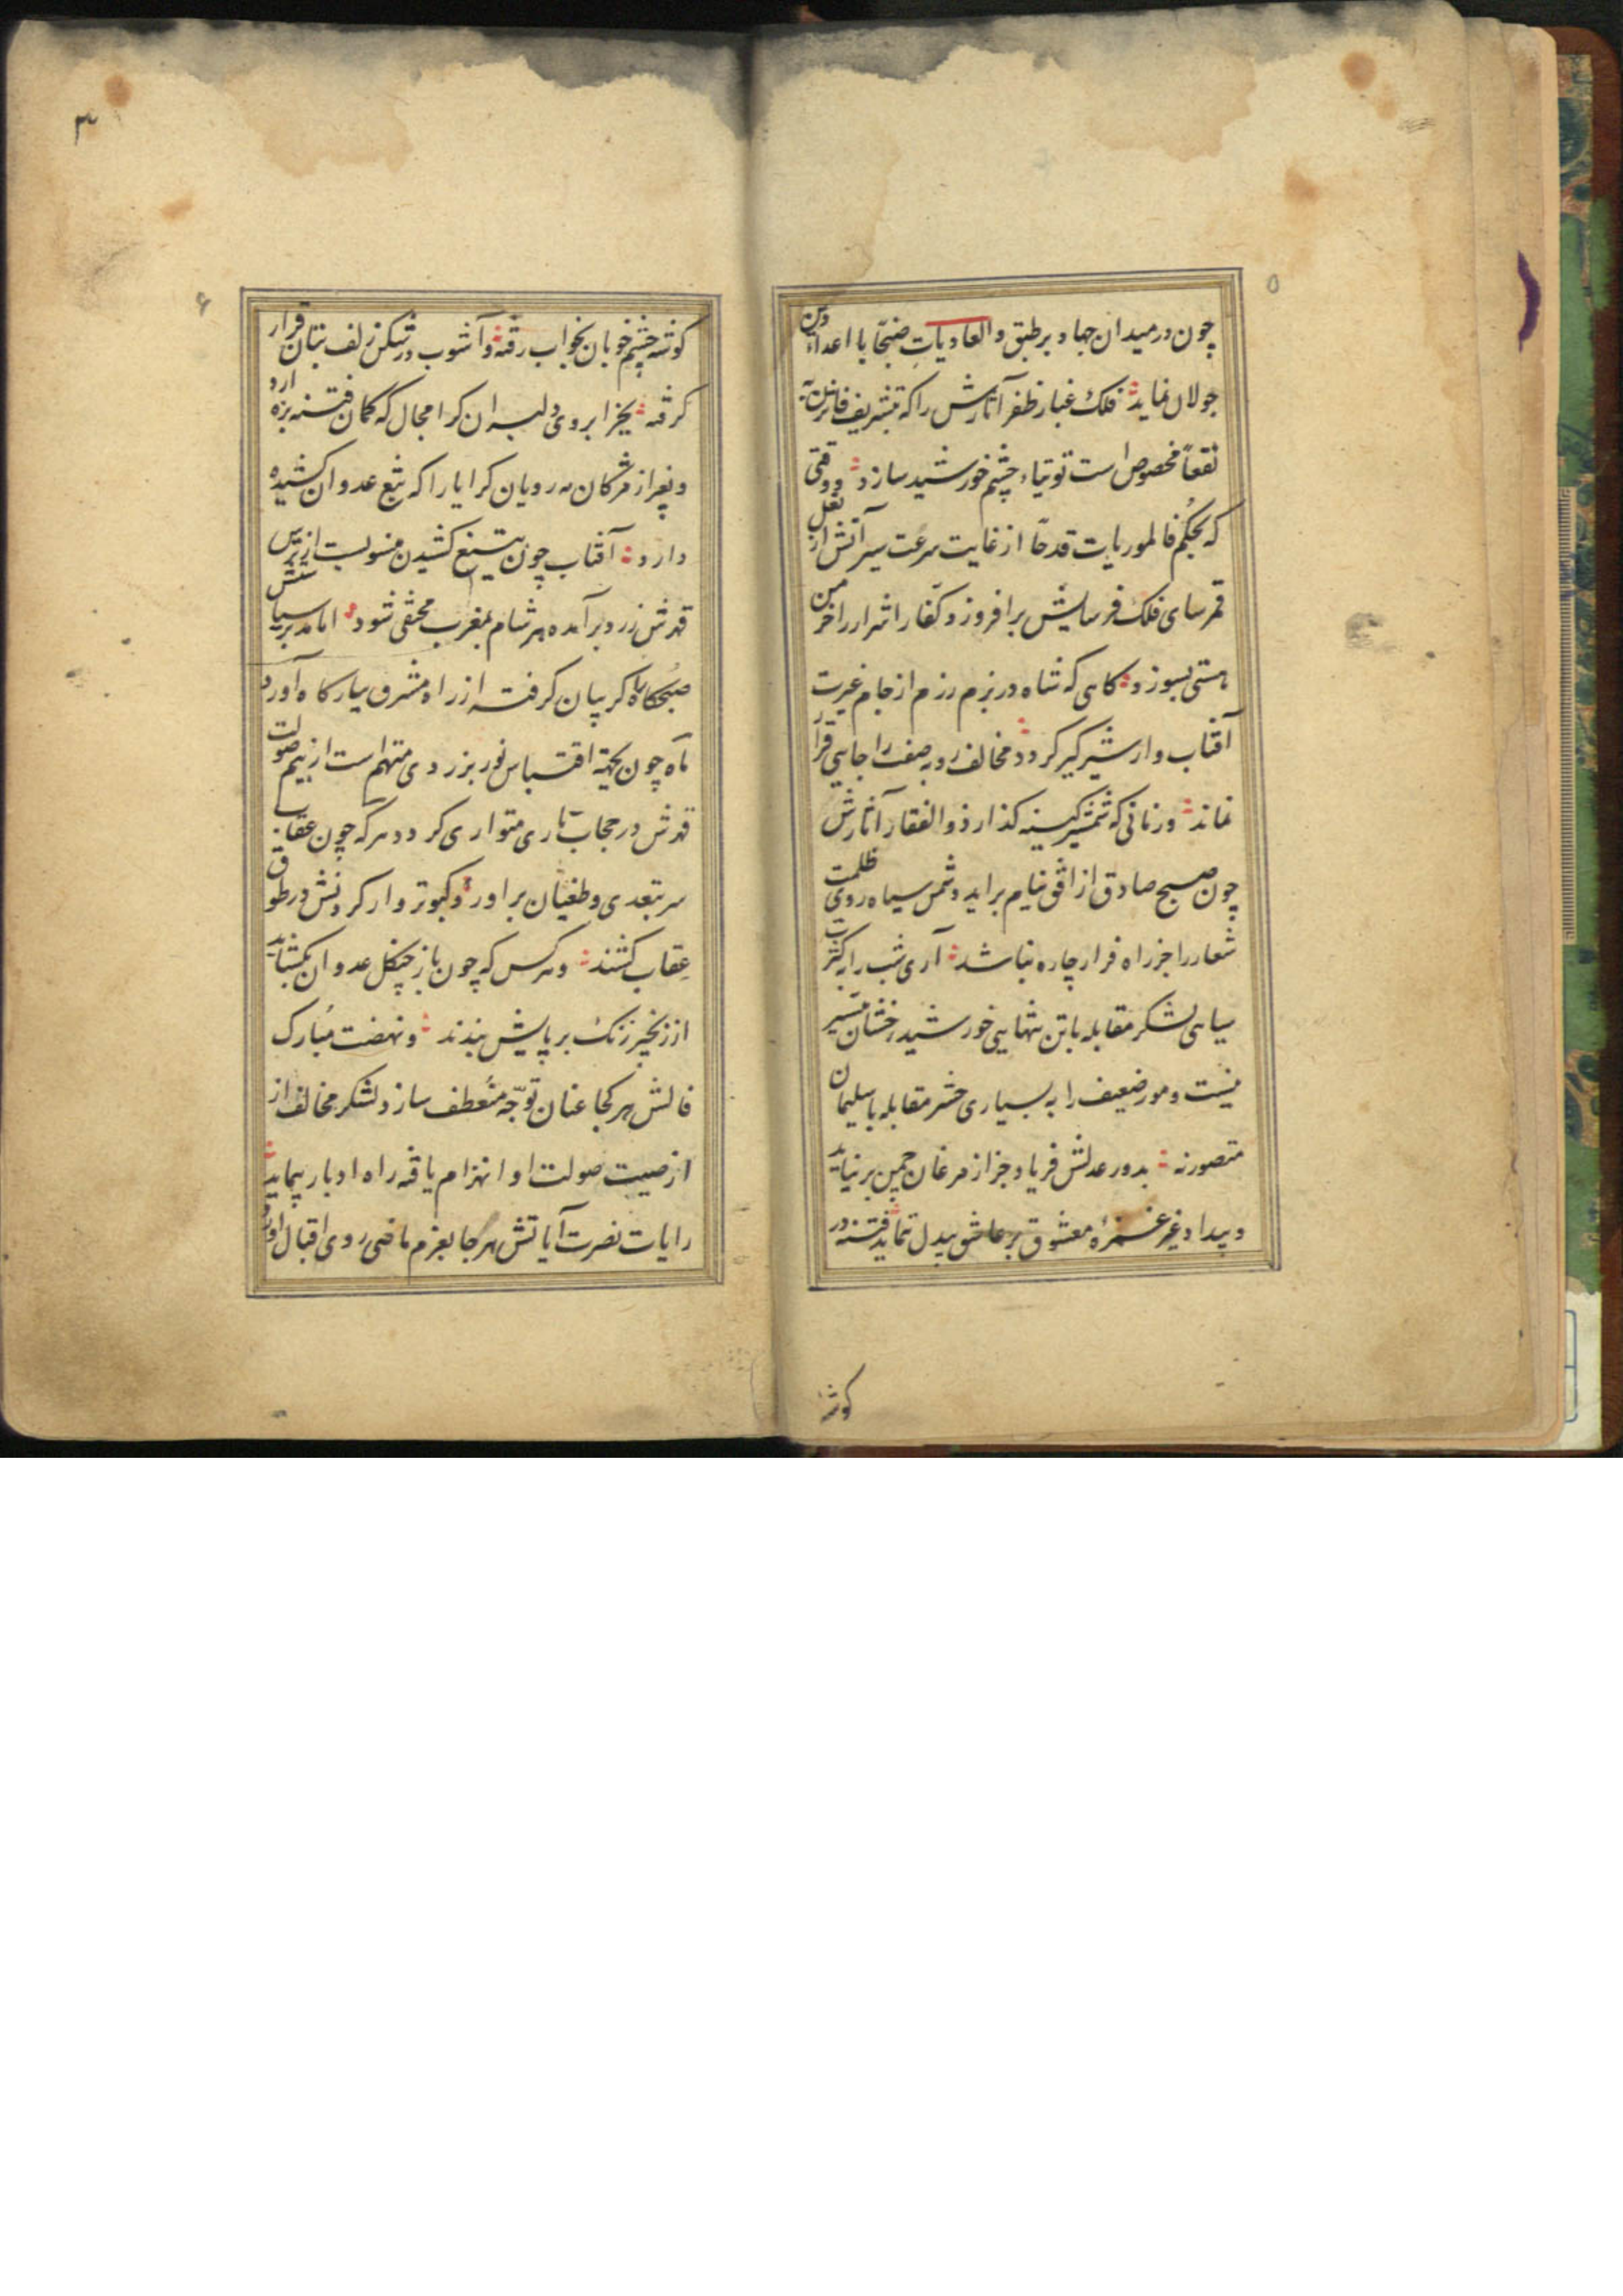 ۵
چون در میدان جهاد بر طبق والعادیاتِ ضبحًا با اعداء دین
جولان نماید فلک غبار ظفر آثارش را که بتشریف فاثرن به
نقعاً مخصوص است توتیاء چشم خورشید سازد و وقتی
که بحکم فالموریات قدحًا از غایت سرعت سیر آتش از نعل
قمرسای فلک فرسایش برافروزد و کفار اشرار را خرمن
هستی بسوزد کاهی که شاه در بزم رزم از جام غیرت
آفتاب وار شیرگیر کردد مخالف روبه صفت را جای قرار
نماند و زمانی که شمشیر کینه کذار ذوالفقار آثارش
چون صبح صادق از افق نیام براید دشمن سیاه روی ظلمت
شعار را جز راه فرار چاره نباشد آری شب را بکثرت
سیاهی لشکر مقابله با تن تنهایی خورشید رخشان میسر
نیست و مور ضعیف را به بسیاری حشر مقابله با سلیمان
متصور نه بدور عدلش فریاد جز از مرغان چمن برنیاید
و بیداد غیر غمزهٔ معشوق بر عاشق بیدل ننماید فتنه در
کوشه
۳
۶
کوشه چشم خوبان بخواب رفته و آشوب در شکن زلف بتان قرار
کرفته بجز ابروی دلبران کرا مجال که کمان فتنه بزه ارد
و بغیر از مژکان مه رویان کرا یارا که تیغ عدوان کشیده
دارد آفتاب چون بتیغ کشیدن منسوبست از ترس
قهرش زرد برآمده هر شام بمغرب مخفی شود اما مدبر سیاستش
صبحکاه کریبان کرفته از راه مشرق ببارکاه آورد
ماه چون بجهة اقتباس نور بزردی متهم است از بیم صولت
قهرش در حجاب تاری متواری کردد هر که چون عقاب
سر بتعدی و طغیان براورد کبوتر وار کردنش در طوق
عِقاب کشند و هر کس که چون باز چنکل عدوان بکشاید
از زنجیر زنک بر پایش بندند و نهضت مُبارک
فالش هر کجا عنان توجّه منعطف سازد لشکر مخالف از
از صیت صولت او انهزام یافته راه ادبار پیماید
رایات نصرت آیاتش هر جا بعزم ماضی روی اقبال آورد